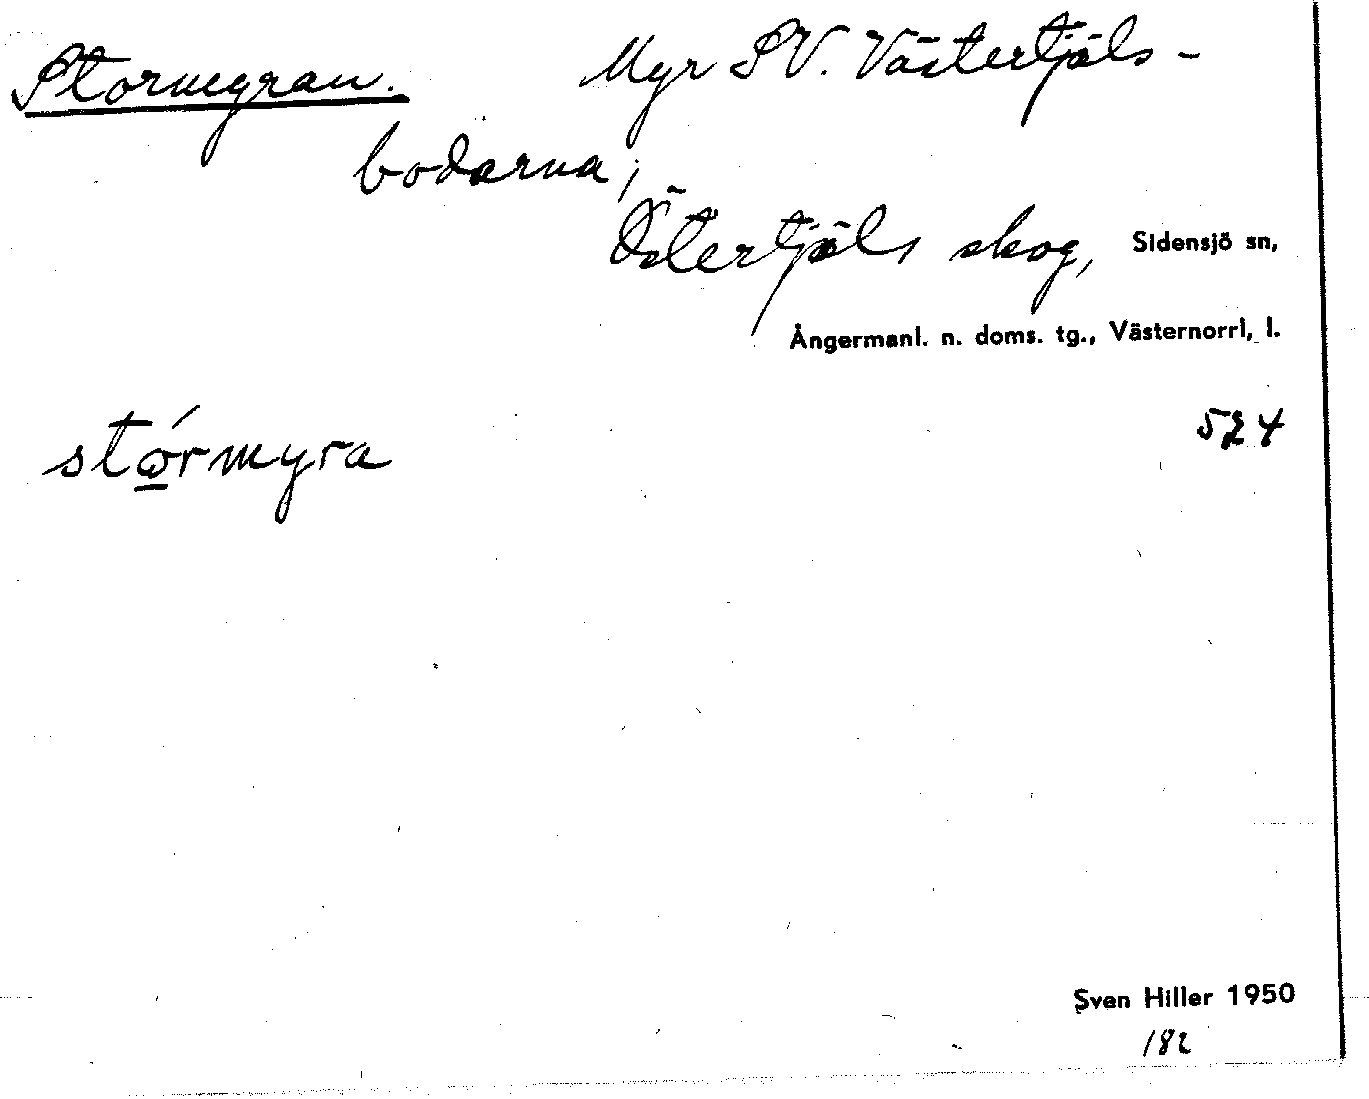 Stormyran. Myr SV. Västertjäls-
bodarna;
Östertjäls skog, Sidensjö sn,
Ångermanl. n. doms. tg., Västernorrl. l.
stórmyra
524
Sven Hiller 1950
182